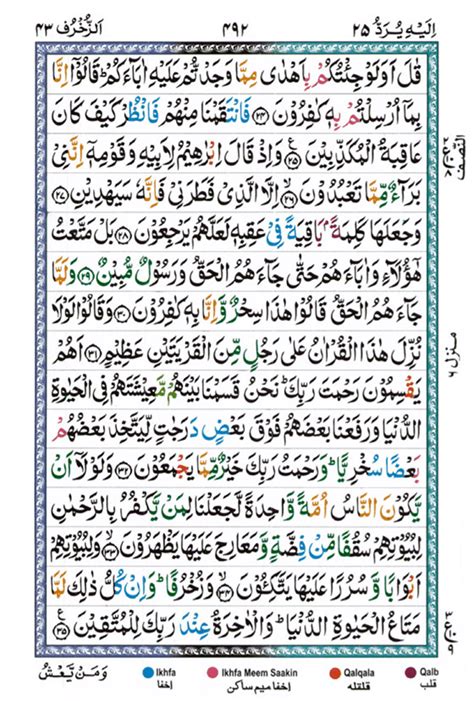 اِلَيْهِ يُرَدُّ ٢٥ ٤٩٢ اَلزُّخْرُف ٤٣
قٰلَ اَوَلَوْ جِئْتُكُمْ بِاَهْدٰى مِمَّا وَجَدْتُّمْ عَلَيْهِ اٰبَآءَكُمْ ؕ قَالُوْۤا اِنَّا
بِمَاۤ اُرْسِلْتُمْ بِهٖ كٰفِرُوْنَ ﴿۲۴﴾ فَانْتَقَمْنَا مِنْهُمْ فَانْظُرْ كَيْفَ كَانَ
عَاقِبَةُ الْمُكَذِّبِيْنَ ﴿۲۵﴾ وَاِذْ قَالَ اِبْرٰهِيْمُ لِاَبِيْهِ وَقَوْمِهٖۤ اِنَّنِيْ
بَرَآءٌ مِّمَّا تَعْبُدُوْنَ ﴿۲۶﴾ اِلَّا الَّذِيْ فَطَرَنِيْ فَاِنَّهٗ سَيَهْدِيْنِ ﴿۲۷﴾
وَجَعَلَهَا كَلِمَةًۢ بَاقِيَةً فِيْ عَقِبِهٖ لَعَلَّهُمْ يَرْجِعُوْنَ ﴿۲۸﴾ بَلْ مَتَّعْتُ
هٰۤؤُلَآءِ وَاٰبَآءَهُمْ حَتّٰى جَآءَهُمُ الْحَقُّ وَرَسُوْلٌ مُّبِيْنٌ ﴿۲۹﴾ وَلَمَّا
جَآءَهُمُ الْحَقُّ قَالُوْا هٰذَا سِحْرٌ وَّاِنَّا بِهٖ كٰفِرُوْنَ ﴿۳۰﴾ وَقَالُوْا لَوْلَا
نُزِّلَ هٰذَا الْقُرْاٰنُ عَلٰى رَجُلٍ مِّنَ الْقَرْيَتَيْنِ عَظِيْمٍ ﴿۳۱﴾ اَهُمْ
يَقْسِمُوْنَ رَحْمَتَ رَبِّكَ ؕ نَحْنُ قَسَمْنَا بَيْنَهُمْ مَّعِيْشَتَهُمْ فِي الْحَيٰوةِ
الدُّنْيَا وَرَفَعْنَا بَعْضَهُمْ فَوْقَ بَعْضٍ دَرَجٰتٍ لِّيَتَّخِذَ بَعْضُهُمْ
بَعْضًا سُخْرِيًّا ؕ وَرَحْمَتُ رَبِّكَ خَيْرٌ مِّمَّا يَجْمَعُوْنَ ﴿۳۲﴾ وَلَوْلَاۤ اَنْ
يَّكُوْنَ النَّاسُ اُمَّةً وَّاحِدَةً لَّجَعَلْنَا لِمَنْ يَّكْفُرُ بِالرَّحْمٰنِ
لِبُيُوْتِهِمْ سُقُفًا مِّنْ فِضَّةٍ وَّمَعَارِجَ عَلَيْهَا يَظْهَرُوْنَ ﴿۳۳﴾ وَلِبُيُوْتِهِمْ
اَبْوَابًا وَّسُرُرًا عَلَيْهَا يَتَّكِئُوْنَ ﴿۳۴﴾ وَزُخْرُفًا ؕ وَاِنْ كُلُّ ذٰلِكَ لَمَّا
مَتَاعُ الْحَيٰوةِ الدُّنْيَا ؕ وَالْاٰخِرَةُ عِنْدَ رَبِّكَ لِلْمُتَّقِيْنَ ﴿۳۵﴾
النصف
منزل ٦
وَمَنْ يَّعْشُ
Ikhfa اخفا Ikhfa Meem Saakin اخفا میم ساکن Qalqala قلقله Qalb قلب